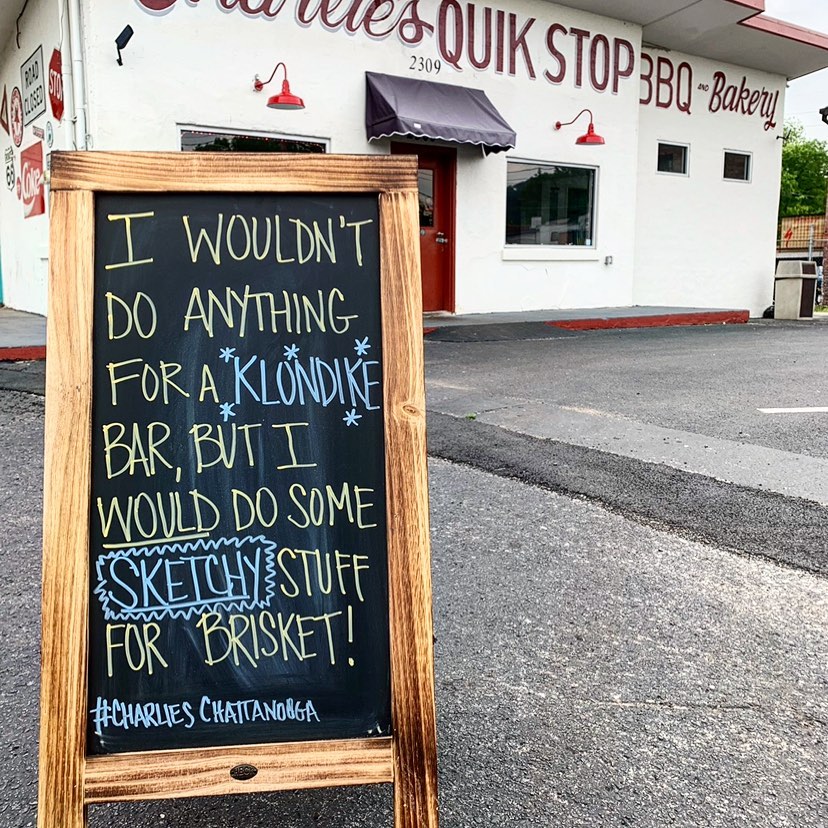 Charlie's QUIK STOP
BBQ AND Bakery
2309
ROAD CLOSED
STOP
66
Coke
I WOULDN'T
DO ANYTHING
FOR A *KLONDIKE*
BAR, BUT I
WOULD DO SOME
SKETCHY STUFF
FOR BRISKET!
#CHARLIESCHATTANOOGA